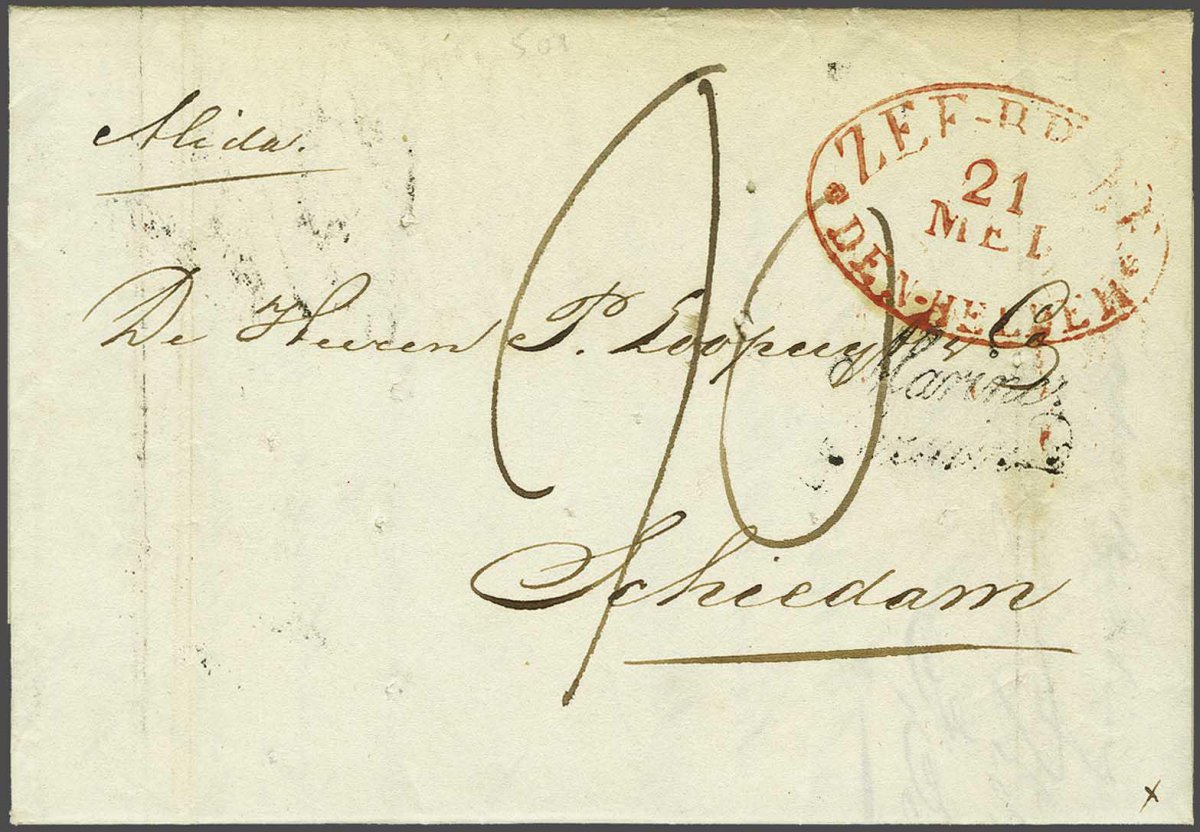 Alida.
ZEE-BR
21
MEI
DEN-HELDER
90
De Heeren P. Loopuyt & Co
Schiedam
x